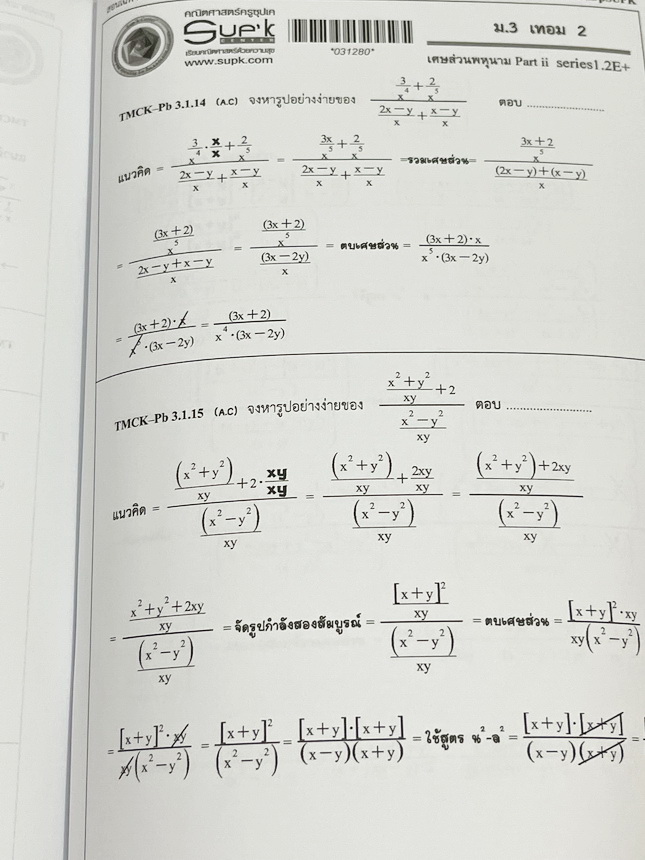 คณิตศาสตร์ครูซุปเค
Sup'k
CENTER
เรียนคณิตศาสตร์ด้วยความสุข
www.supk.com
*031280*
ม.3 เทอม 2
เศษส่วนพหุนาม Part ii series1.2E+
TMCK–Pb 3.1.14 (A.C) จงหารูปอย่างง่ายของ \frac{\frac{3}{x^4}+\frac{2}{x^5}}{\frac{2x-y}{x}+\frac{x-y}{x}} ตอบ ........................
แนวคิด = \frac{\frac{3}{x^4}·\frac{x}{x}+\frac{2}{x^5}}{\frac{2x-y}{x}+\frac{x-y}{x}} = \frac{\frac{3x}{x^5}+\frac{2}{x^5}}{\frac{2x-y}{x}+\frac{x-y}{x}} =รวมเศษส่วน= \frac{\frac{3x+2}{x^5}}{\frac{(2x-y)+(x-y)}{x}}
= \frac{\frac{(3x+2)}{x^5}}{\frac{2x-y+x-y}{x}} = \frac{\frac{(3x+2)}{x^5}}{\frac{(3x-2y)}{x}} = ตบเศษส่วน = \frac{(3x+2)·x}{x^5·(3x-2y)}
= \frac{(3x+2)·x}{x^5·(3x-2y)} = \frac{(3x+2)}{x^4·(3x-2y)}
TMCK–Pb 3.1.15 (A.C) จงหารูปอย่างง่ายของ \frac{\frac{x^2+y^2}{xy}+2}{\frac{x^2-y^2}{xy}} ตอบ ........................
แนวคิด = \frac{\frac{(x^2+y^2)}{xy}+2·\frac{xy}{xy}}{\frac{(x^2-y^2)}{xy}} = \frac{\frac{(x^2+y^2)}{xy}+\frac{2xy}{xy}}{\frac{(x^2-y^2)}{xy}} = \frac{\frac{(x^2+y^2)+2xy}{xy}}{\frac{(x^2-y^2)}{xy}}
= \frac{\frac{x^2+y^2+2xy}{xy}}{\frac{(x^2-y^2)}{xy}} = จัดรูปกำลังสองสมบูรณ์ = \frac{\frac{[x+y]^2}{xy}}{\frac{(x^2-y^2)}{xy}} = ตบเศษส่วน = \frac{[x+y]^2·xy}{xy(x^2-y^2)}
= \frac{[x+y]^2·xy}{xy(x^2-y^2)} = \frac{[x+y]^2}{(x^2-y^2)} = \frac{[x+y]·[x+y]}{(x-y)(x+y)} = ใช้สูตร น^2-ล^2 = \frac{[x+y]·[x+y]}{(x-y)(x+y)} =